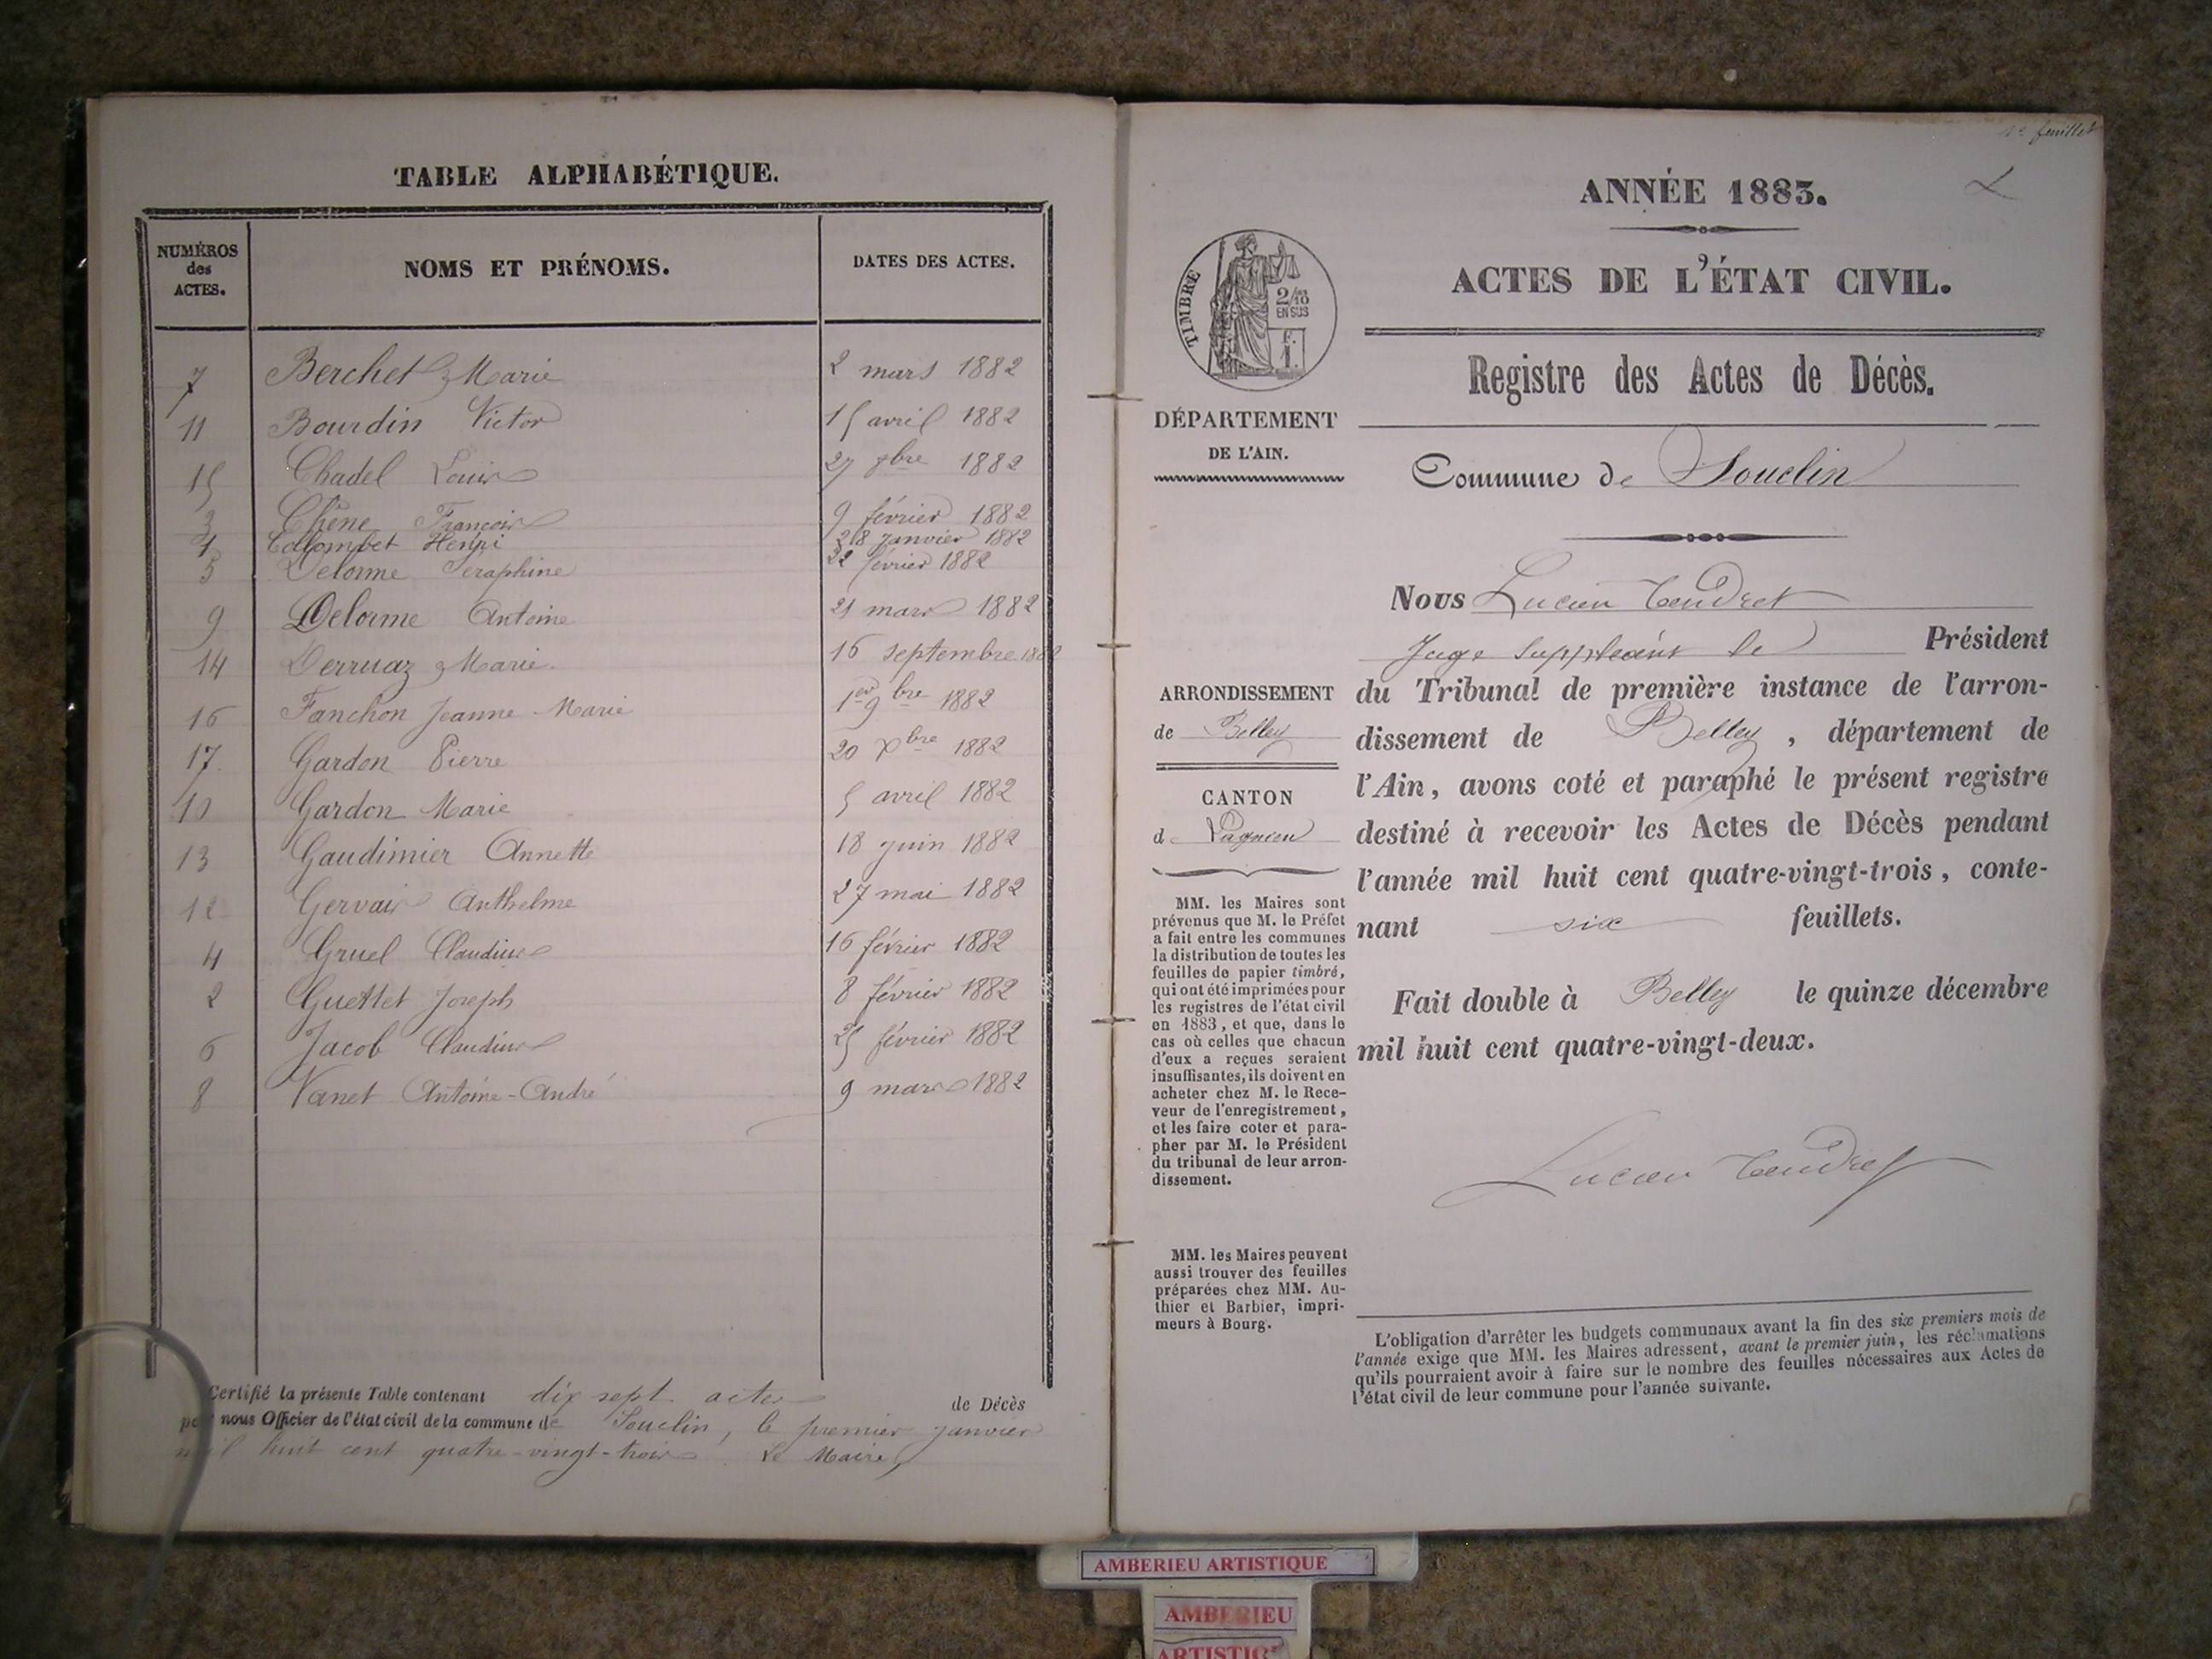 TABLE ALPHABÉTIQUE.
NUMÉROS des ACTES. NOMS ET PRÉNOMS. DATES DES ACTES.
7 Berchet Marie 2 mars 1882
11 Bourdin Victor 15 avril 1882
15 Chadel Louis 27 8bre 1882
3 Chêne François 9 février 1882
1 Collombet Henri 28 janvier 1882
5 Delorme Séraphine 22 février 1882
9 Delorme Antoine 21 mars 1882
14 Derruaz Marie 16 septembre 1882
16 Fanchon Jeanne-Marie 1er 9bre 1882
17 Gardon Pierre 20 Xbre 1882
10 Gardon Marie 5 avril 1882
13 Gaudimier Annette 18 juin 1882
12 Gervais Anthelme 27 mai 1882
4 Gruel Claudius 16 février 1882
2 Guettet Joseph 8 février 1882
6 Jacob Claudius 25 février 1882
8 Vanet Antoine-André 9 mars 1882
Certifié la présente Table contenant dix sept actes de Décès
par nous Officier de l'état civil de la commune de Souclin, le premier janvier
mil huit cent quatre-vingt-trois. Le Maire,
1er feuillet
ANNÉE 1883.
ACTES DE L'ÉTAT CIVIL.
Registre des Actes de Décès.
TIMBRE
2/10
EN SUS
f.
1.
DÉPARTEMENT
DE L'AIN.
Commune de Souclin
ARRONDISSEMENT
de Belley
CANTON
d Lagnieu
MM. les Maires sont
prévenus que M. le Préfet
a fait entre les communes
la distribution de toutes les
feuilles de papier timbré,
qui ont été imprimées pour
les registres de l'état civil
en 1883, et que, dans le
cas où celles que chacun
d'eux a reçues seraient
insuffisantes, ils doivent en
acheter chez M. le Rece-
veur de l'enregistrement,
et les faire coter et para-
pher par M. le Président
du tribunal de leur arron-
dissement.
MM. les Maires peuvent
aussi trouver des feuilles
préparées chez MM. Au-
thier et Barbier, impri-
meurs à Bourg.
Nous Lucien Tendret
Juge Suppléant le Président
du Tribunal de première instance de l'arron-
dissement de Belley, département de
l'Ain, avons coté et paraphé le présent registre
destiné à recevoir les Actes de Décès pendant
l'année mil huit cent quatre-vingt-trois, conte-
nant six feuillets.
Fait double à Belley le quinze décembre
mil huit cent quatre-vingt-deux.
Lucien Tendret
L'obligation d'arrêter les budgets communaux avant la fin des six premiers mois de
l'année exige que MM. les Maires adressent, avant le premier juin, les réclamations
qu'ils pourraient avoir à faire sur le nombre des feuilles nécessaires aux Actes de
l'état civil de leur commune pour l'année suivante.
AMBERIEU ARTISTIQUE
AMBERIEU
ARTISTIQ